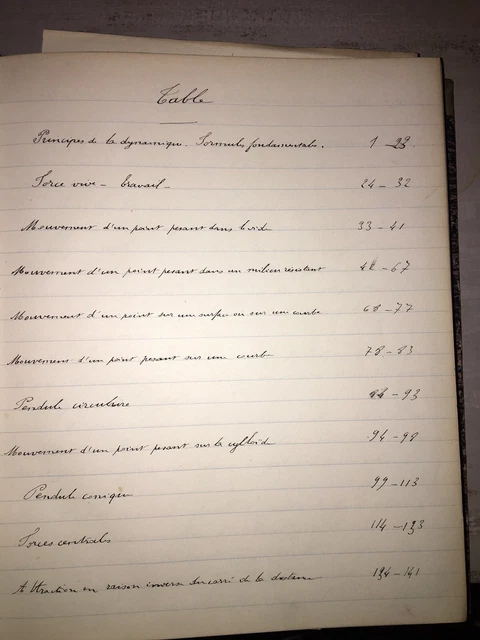 Table
Principes de la dynamique. Formules fondamentales. 1 - 23.
Force vive - travail - 24 - 32
Mouvement d'un point pesant dans le vide 33 - 41
Mouvement d'un point pesant dans un milieu résistant 42 - 67
Mouvement d'un point sur une surface ou sur une courbe 68 - 77
Mouvement d'un point pesant sur une courbe 78 - 83
Pendule circulaire 84 - 93
Mouvement d'un point pesant sur la cycloïde 94 - 98
Pendule conique 99 - 113
Forces centrales 114 - 133
Attraction en raison inverse du carré de la distance 134 - 141